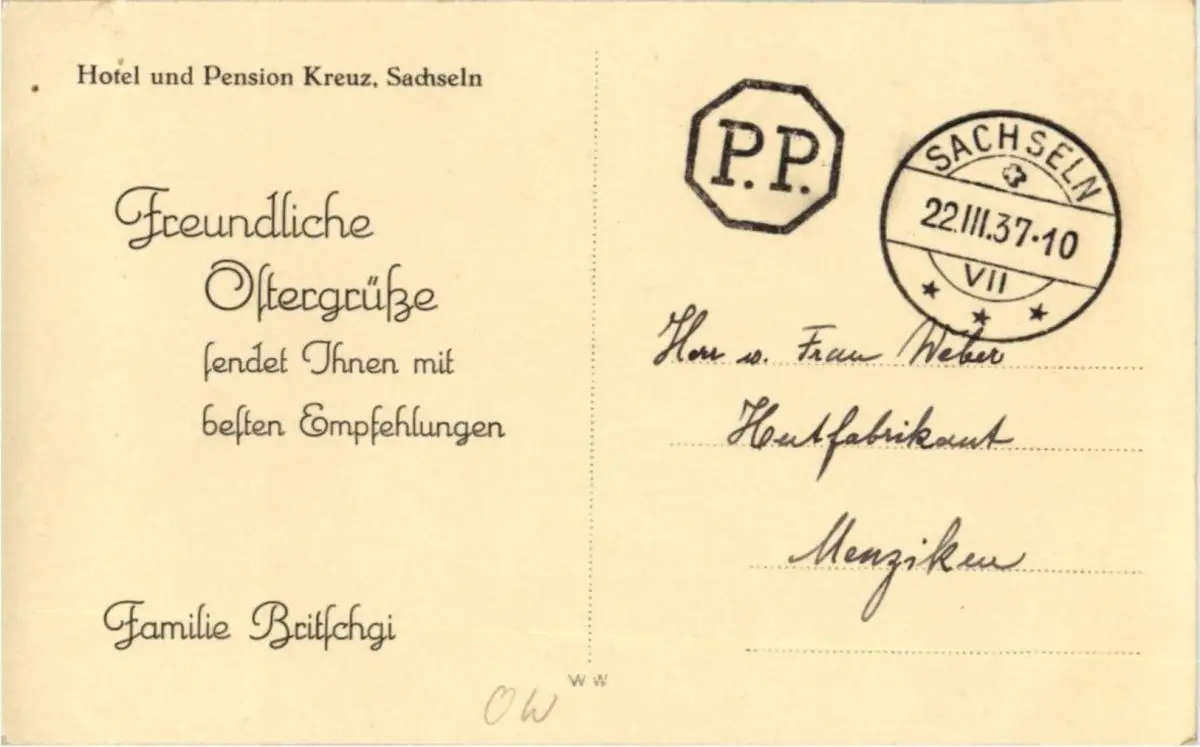 Hotel und Pension Kreuz, Sachseln
Freundliche
Oſtergrüße
ſendet Ihnen mit
beſten Empfehlungen
Familie Britſchgi
P.P.
SACHSELN
22.III.37·10
VII
Herr u. Frau Weber
Hutfabrikant
Menziken
WW
OW